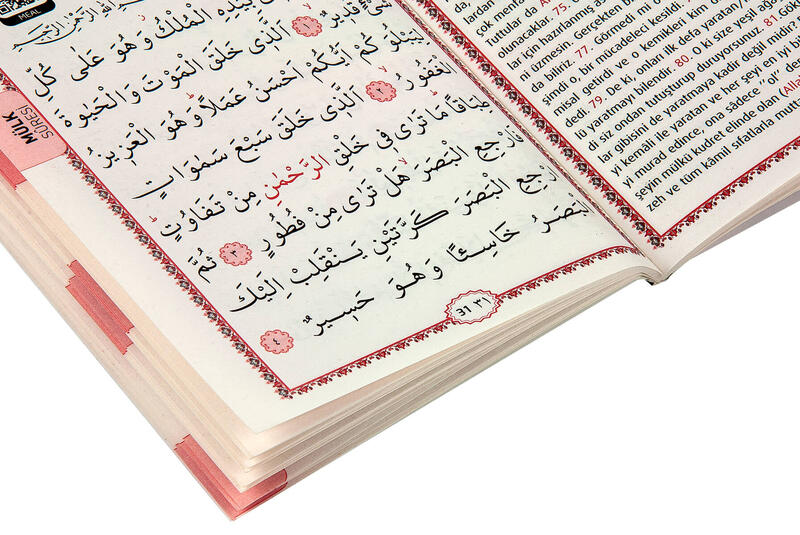 MEAL
بِيَدِهِ الْمُلْكُ وَهُوَ عَلٰى كُلِّ
قَدِيرٌ ١ اَلَّذ۪ى خَلَقَ الْمَوْتَ وَالْحَيٰوةَ
لِيَبْلُوَكُمْ اَيُّكُمْ اَحْسَنُ عَمَلاً وَهُوَ الْعَز۪يزُ
الْغَفُورُ ٢ اَلَّذ۪ى خَلَقَ سَبْعَ سَمٰوَاتٍ
طِبَاقًا مَا تَرٰى ف۪ى خَلْقِ الرَّحْمٰنِ مِنْ تَفَاوُتٍ
فَارْجِعِ الْبَصَرَ هَلْ تَرٰى مِنْ فُطُورٍ ٣ ثُمَّ
ارْجِعِ الْبَصَرَ كَرَّتَيْنِ يَنْقَلِبْ اِلَيْكَ
الْبَصَرُ خَاسِئًا وَهُوَ حَس۪يرٌ ٤
MÜLK
SÛRESİ
31 ٣١
tuttular da
lunacaklar. 75.
lar için hazırlanmış
ni üzmesin. Gerçekten
da biliriz. 77. Görmedi mi
şimdi o, bir mücadeleci kesildi.
misal getirdi ve o kemikleri kim
dedi. 79. De ki, onları ilk defa yaratan
lü yaratmayı bilendir. 80. O ki size yeşil ağaç
di siz ondan tutuşturup duruyorsunuz. 81.
lar gibisini de yaratmaya kadir değil midir?
yi kemâli ile yaratan ve her şeyi, en iyi bi
yi murad edince, ona sadece “ol” de
şeyin mülkü kudret elinde olan
zeh ve tüm kâmil sıfatlarla mutta